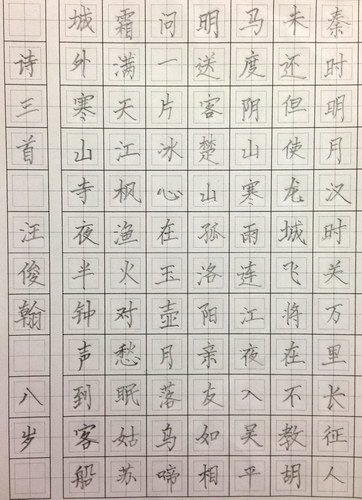 秦时明月汉时关万里长征人
未还但使龙城飞将在不教胡
马度阴山寒雨连江夜入吴平
明送客楚山孤洛阳亲友如相
问一片冰心在玉壶月落乌啼
霜满天江枫渔火对愁眠姑苏
城外寒山寺夜半钟声到客船
诗三首 汪俊翰 八岁